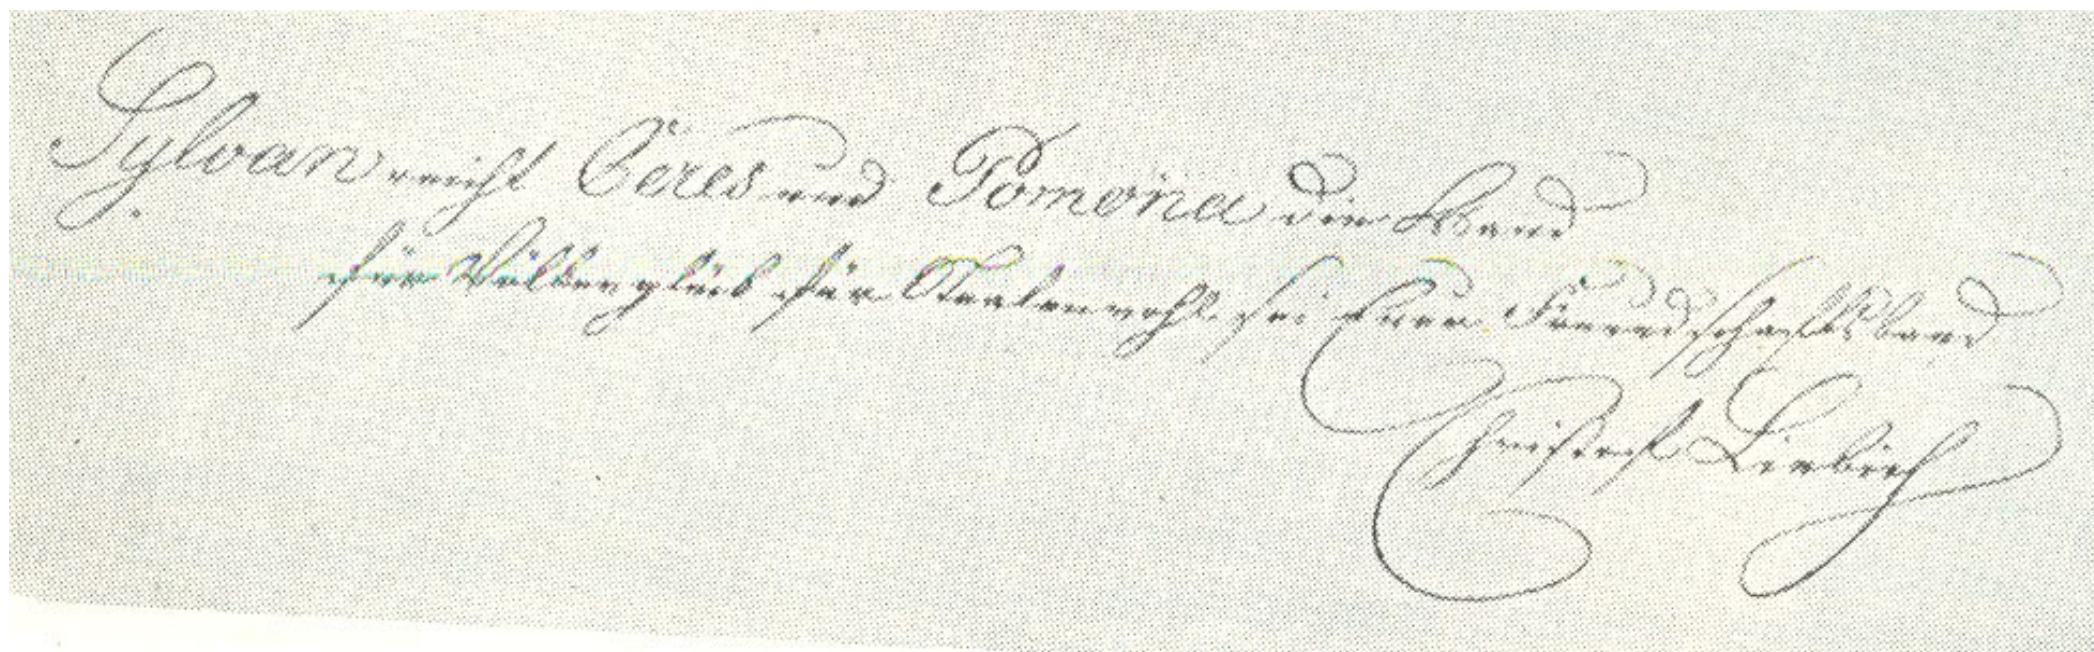 Sylvan reicht Ceres und Pomona die Hand
für Völkerglück für Staatenwohl sei Euer Freundschaftsband
Christoph Liebich